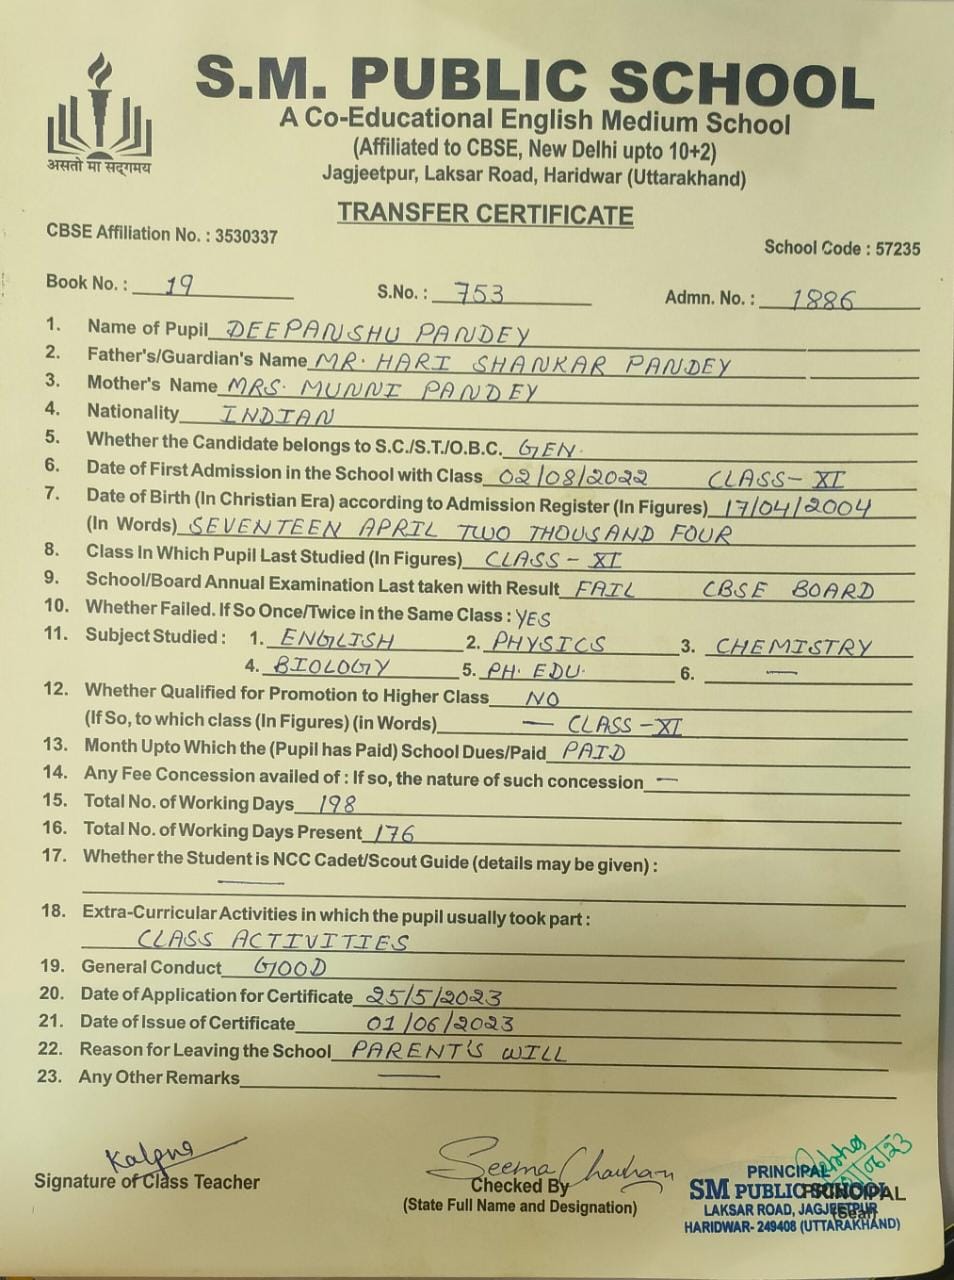 S.M. PUBLIC SCHOOL
A Co-Educational English Medium School
(Affiliated to CBSE, New Delhi upto 10+2)
असतो मा सद्गमय
Jagjeetpur, Laksar Road, Haridwar (Uttarakhand)
TRANSFER CERTIFICATE
CBSE Affiliation No. : 3530337
School Code : 57235
Book No. : 19 S.No. : 753 Admn. No. : 1886
1. Name of Pupil DEEPANSHU PANDEY
2. Father's/Guardian's Name MR. HARI SHANKAR PANDEY
3. Mother's Name MRS. MUNNI PANDEY
4. Nationality INDIAN
5. Whether the Candidate belongs to S.C./S.T./O.B.C. GEN.
6. Date of First Admission in the School with Class 02/08/2022 CLASS-XI
7. Date of Birth (In Christian Era) according to Admission Register (In Figures) 17/04/2004
(In Words) SEVENTEEN APRIL TWO THOUSAND FOUR
8. Class In Which Pupil Last Studied (In Figures) CLASS - XI
9. School/Board Annual Examination Last taken with Result FAIL CBSE BOARD
10. Whether Failed. If So Once/Twice in the Same Class : YES
11. Subject Studied : 1. ENGLISH 2. PHYSICS 3. CHEMISTRY
4. BIOLOGY 5. PH. EDU. 6. —
12. Whether Qualified for Promotion to Higher Class NO
(If So, to which class (In Figures) (in Words) — CLASS -XI
13. Month Upto Which the (Pupil has Paid) School Dues/Paid PAID
14. Any Fee Concession availed of : If so, the nature of such concession —
15. Total No. of Working Days 198
16. Total No. of Working Days Present 176
17. Whether the Student is NCC Cadet/Scout Guide (details may be given) :
—
18. Extra-Curricular Activities in which the pupil usually took part :
CLASS ACTIVITIES
19. General Conduct GOOD
20. Date of Application for Certificate 25/5/2023
21. Date of Issue of Certificate 01/06/2023
22. Reason for Leaving the School PARENT'S WILL
23. Any Other Remarks —
Kalpna
Signature of Class Teacher
Seema Chauhan
Checked By
(State Full Name and Designation)
PRINCIPAL
SM PUBLIC SCHOOL
PRINCIPAL
(Seal)
LAKSAR ROAD, JAGJEETPUR
HARIDWAR- 249408 (UTTARAKHAND)